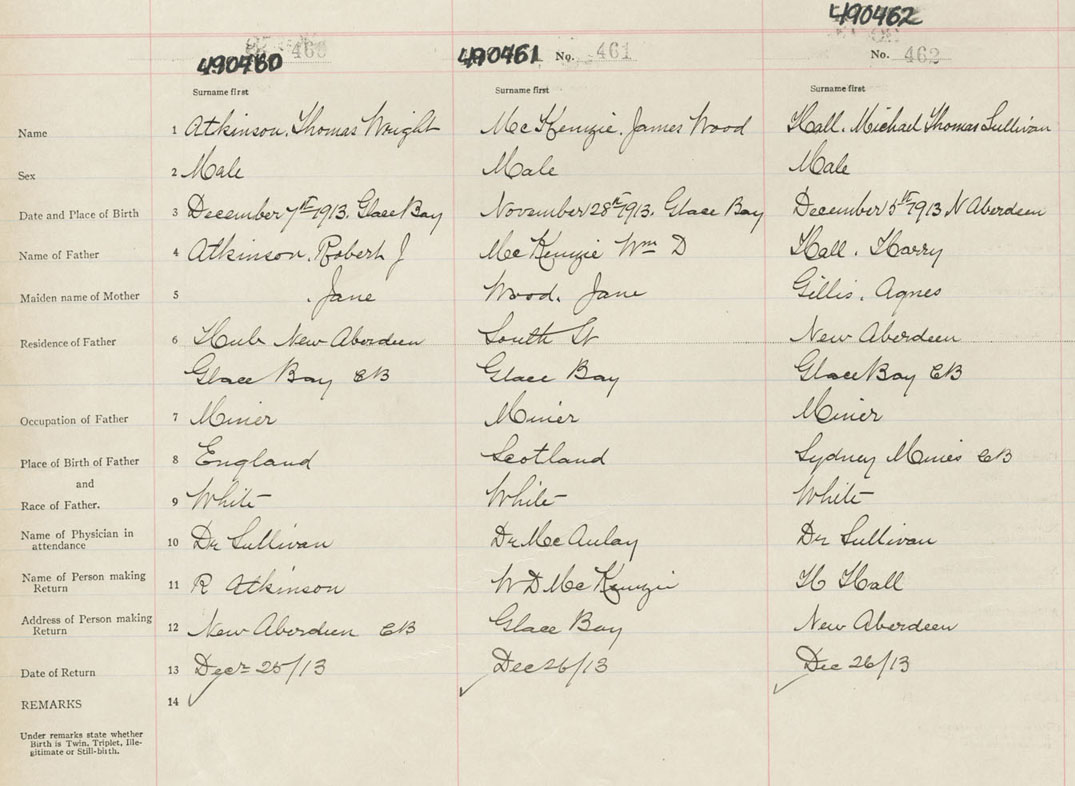 490462
490460 460
490461 No. 461
No. 462
Surname first Surname first Surname first
Name 1 Atkinson, Thomas Wright McKenzie, James Wood Hall, Michael Thomas Sullivan
Sex 2 Male Male Male
Date and Place of Birth 3 December 7th 1913, Glace Bay November 28th 1913, Glace Bay December 5th 1913, N Aberdeen
Name of Father 4 Atkinson, Robert J McKenzie Wm D Hall, Harry
Maiden name of Mother 5 , Jane Wood, Jane Gillis, Agnes
Residence of Father 6 Hub New Aberdeen South St New Aberdeen
Glace Bay CB Glace Bay Glace Bay CB
Occupation of Father 7 Miner Miner Miner
Place of Birth of Father 8 England Scotland Sydney Mines CB
and
Race of Father. 9 White White White
Name of Physician in
attendance 10 Dr Sullivan Dr McAulay Dr Sullivan
Name of Person making
Return 11 R Atkinson W D McKenzie H Hall
Address of Person making
Return 12 New Aberdeen CB Glace Bay New Aberdeen
Date of Return 13 Decr 25/13 Dec 26/13 Dec 26/13
REMARKS 14
Under remarks state whether
Birth is Twin, Triplet, Ille-
gitimate or Still-birth.